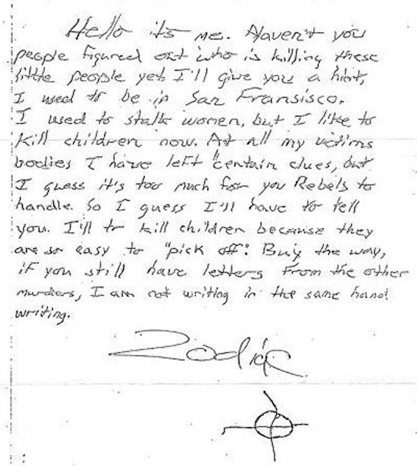 Hello it's me. Haven't you
people figured out who is killing these
little people yet I'll give you a hint,
I used to be in San Fransisco.
I used to stalk women, but I like to
kill children now. At all my victims
bodies I have left "certain clues, but
I guess it's too much for you Rebels to
handle. So I guess I'll have to tell
you. I'll kill children because they
are so easy to "pick off". Buy the way,
if you still have letters from the other
murders, I am not writing in the same hand
writing.
Zodiac